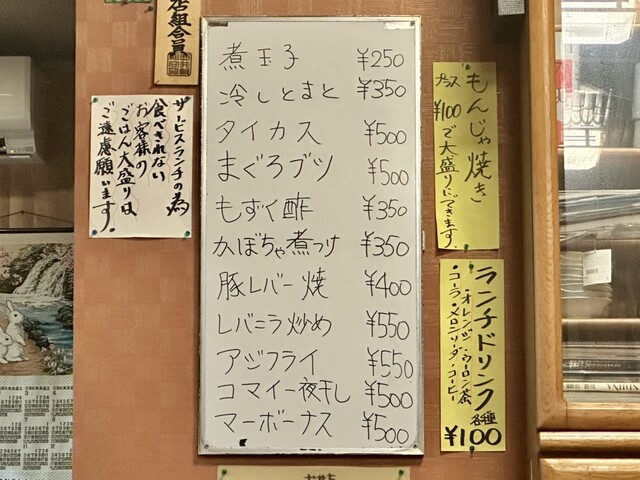 店組合員
煮玉子 ¥250
冷しとまと ¥350
タイカス ¥500
まぐろブツ ¥500
もずく酢 ¥350
かぼちゃ煮つけ ¥350
豚レバー焼 ¥400
レバニラ炒め ¥550
アジフライ ¥550
コマイ一夜干し ¥500
マーボーナス ¥500
サービスランチの為
食べきれない
お客様の
ごはん大盛りは
ご遠慮願います。
もんじゃ焼き
プラス
¥100で大盛りにできます。
ランチドリンク
・オレンジ・ウーロン茶
・コーラ・メロンソーダ・コーヒー
各種
¥100